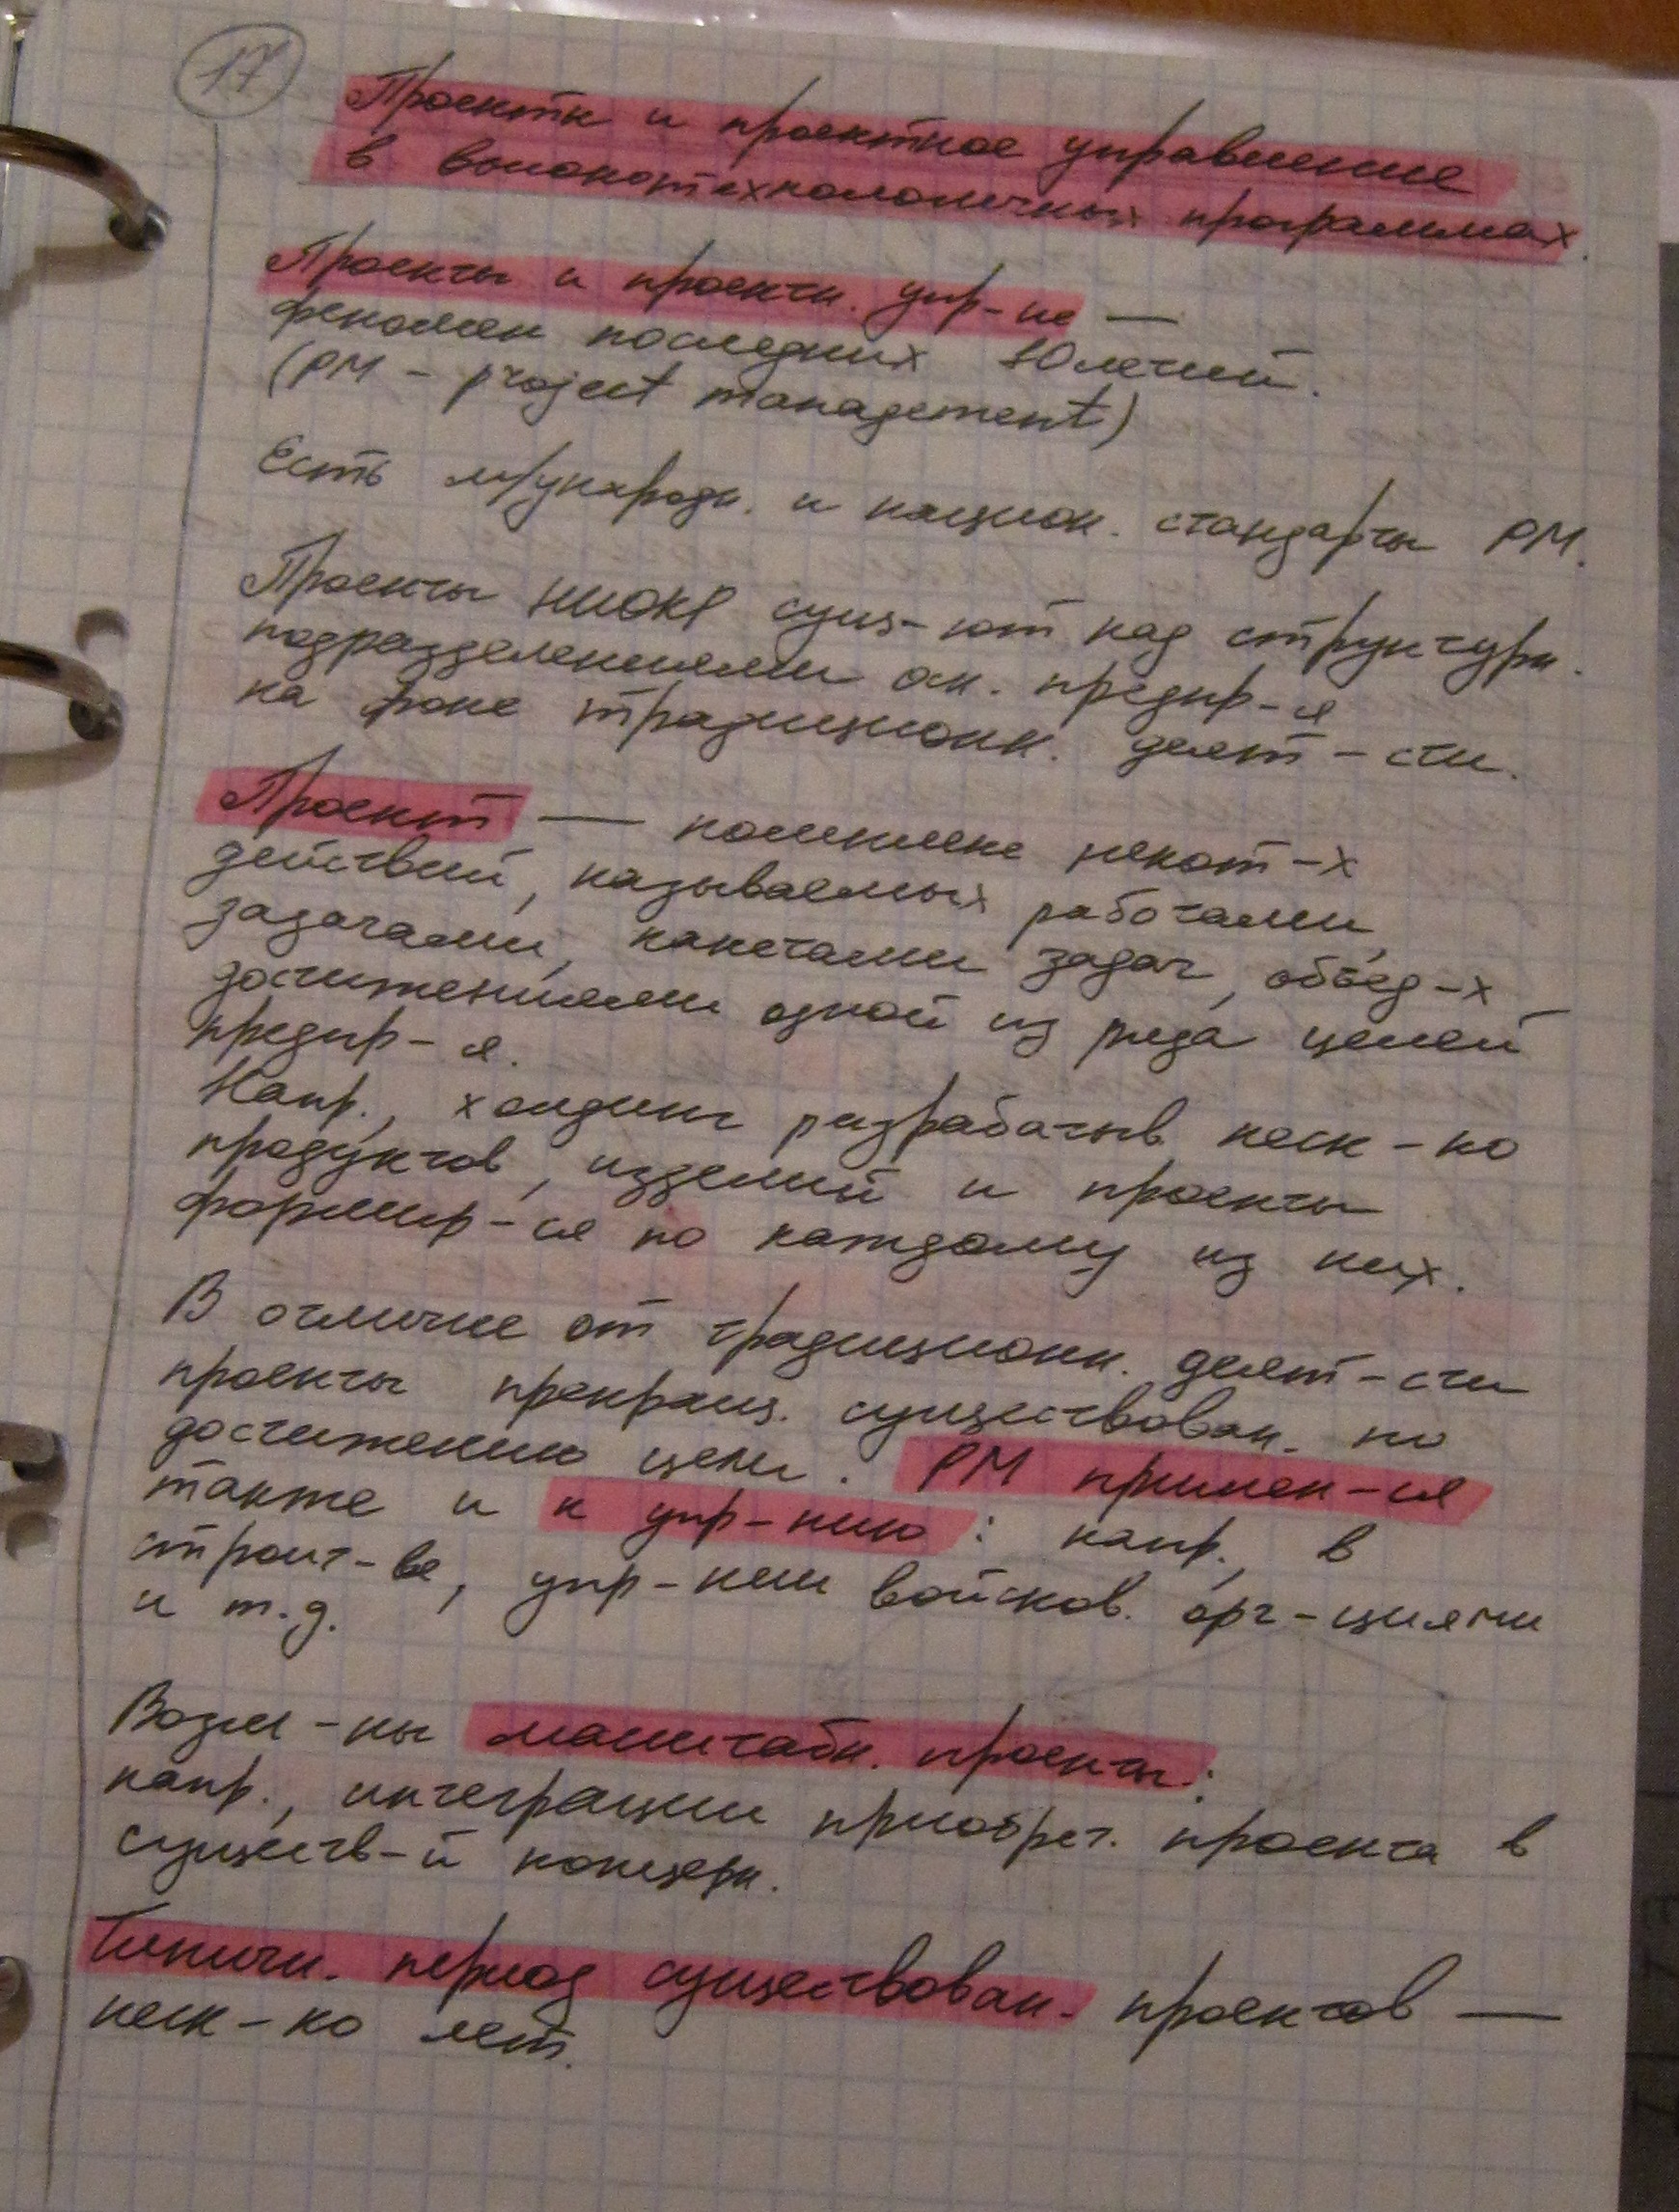 17
Проекты и проектное управление
в высокотехнологичных программах.
Проекты и проектн. упр-ие —
феномен последних 10летий.
(PM – project management)
Есть м/ународн. и национ. стандарты PM.
Проекты НИОКР сущ-ют над структурн.
подразделениями осн. предпр-я
на фоне традиционн. деят-сти.
Проект — комплекс некот-х
действий, называемых работами,
задачами, пакетами задач, объед-х
достижениями одной из ряда целей
предпр-я.
Напр., холдинг разрабатыв. неск-ко
продуктов, изделий и проекты
формир-ся по каждому из них.
В отличие от традиционн. деят-сти
проекты прекращ. существован. по
достижению цели. PM примен-ся
также и к упр-нию: напр., в
строит-ве, упр-нии войсков. орг-циями
и т.д.
Возм-ны масштабн. проекты:
напр., интеграции приобрет. проекта в
существ-й концерн.
Типичн. период существован. проектов —
неск-ко лет.